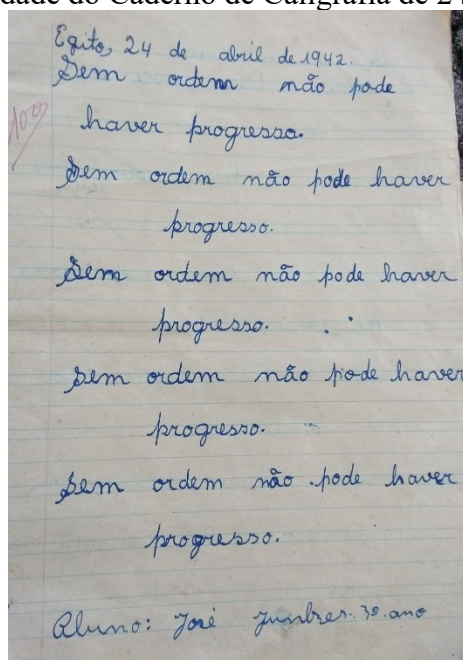 dade do Caderno de Caligrafia de 24
Egito, 24 de abril de 1942.
Sem ordem não pode
100
haver progresso.
Sem ordem não pode haver
progresso.
Sem ordem não pode haver
progresso.
Sem ordem não pode haver
progresso.
Sem ordem não pode haver
progresso.
Aluno: José 3º. ano